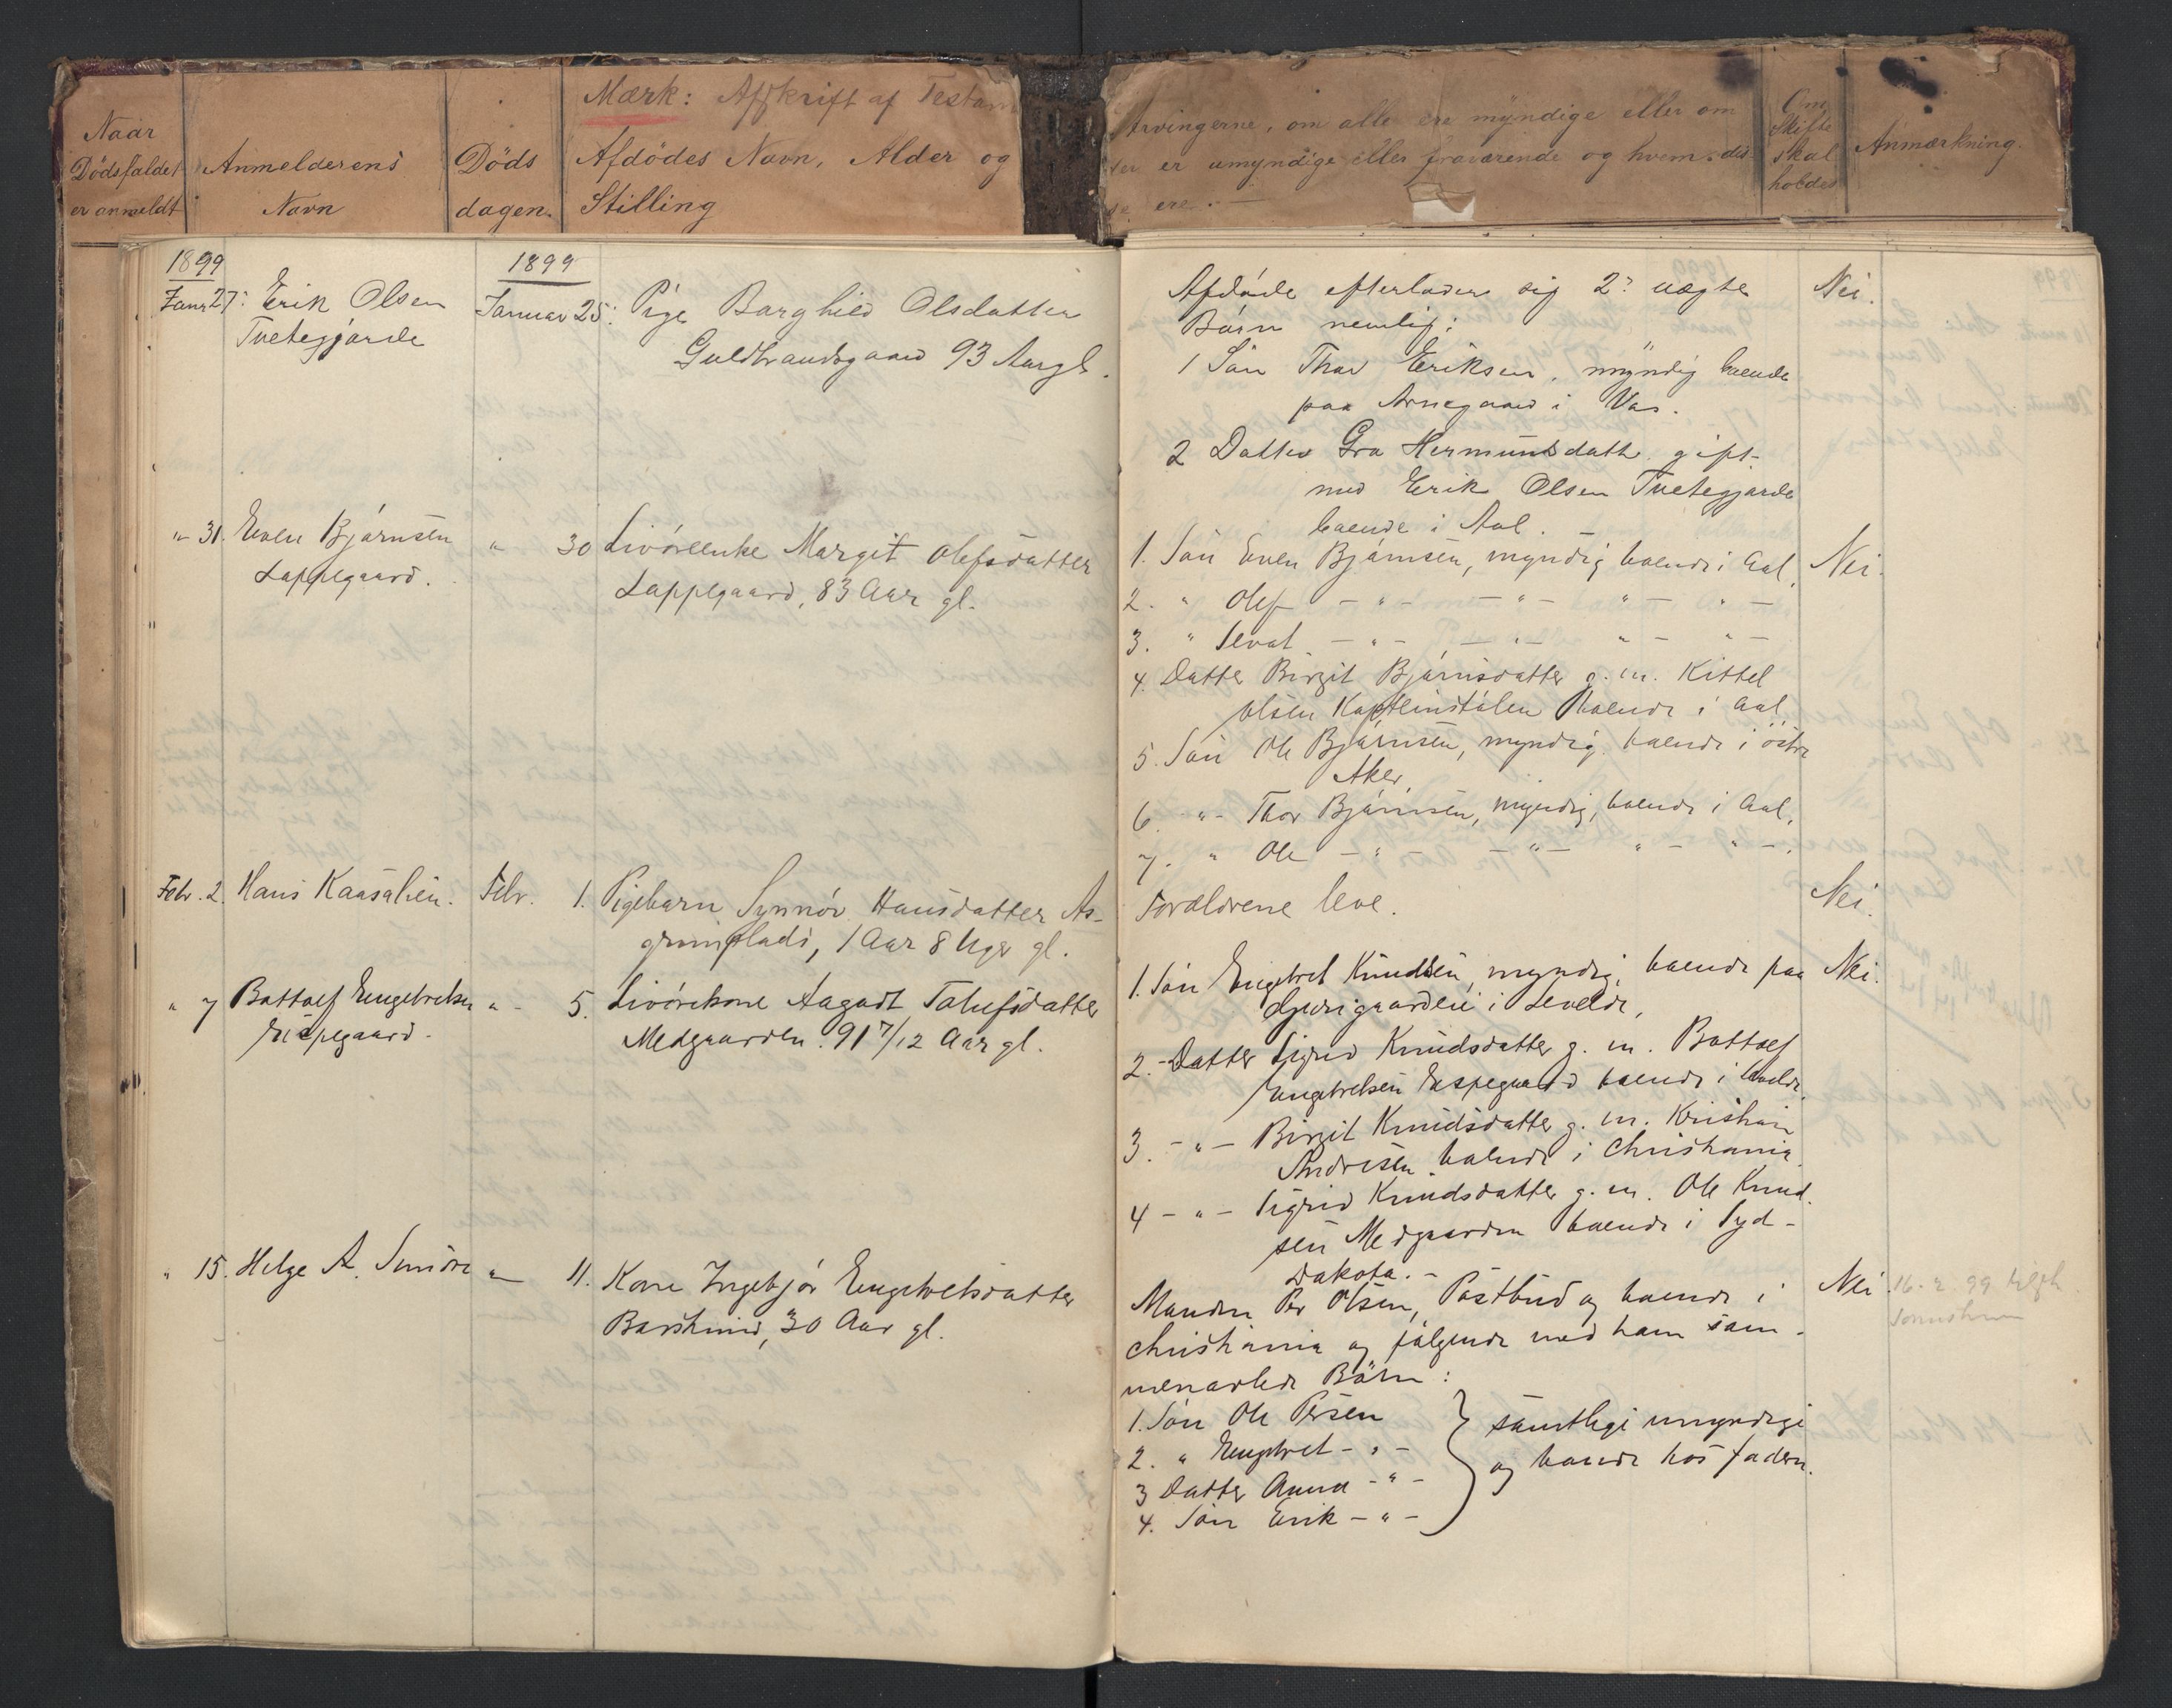 Naar
Dödsfaldet
er anmeldt
Anmelderens
Navn
Döds
dagen.
Mærk: Afskrift af Testam
Afdödes Navn, Alder og
Stilling
Arvingerne, om alle ere myndige eller om
er umyndige eller fraværende og hvem dis
se ere. —
Om
Skifte
skal
holdes
Anmærkning.
1899
Janr 27: Erik Olsen
Tvetegjærde
1899
Januar 25: Pige Barghild Olsdatter
Guldbrandsgaard 93 Aargl.
Afdøde efterlader sig 2: uægte
Børn nemlig:
1 Søn Thor Eriksen, myndig boende
paa Arnegaard i Vas.
2 Datter Gro Hermundsdatt. gift
med Erik Olsen Tvetegjærde
boende i Aal. –
Nei.
" 31. Even Bjørnsen
Lappegaard.
" 30 Livørenke Margit Olefsdatter
Lappegaard, 83 Aar gl.
1. Søn Even Bjørnsen, myndig boende i Aal.
2. " Olef – " – – " – " – " –
3. " Sevat – " – – " – " – " –
4. Datter Birgit Bjørnsdatter g. m. Kittel
Olsen boende i Aal
5. Søn Ole Bjørnsen, myndig boende i östre
Aker.
6. " Thor Bjørnsen, myndig, boende i Aal.
7. " Ole – " – – " – " – " –.
Nei.
Febr. 2. Hans Kaasahein.
Febr. 1. Pigebarn Synnöv Hansdatter As-
grimplads, 1 Aar 8 Uger gl.
Forældrene leve.
Nei.
" 7 Bottolf Engebretsen
Espegaard.
" 5. Livörekone Aagodt Tolufsdatter
Medgaarden. 91 7/12 Aar gl.
1. Søn Engebret Knudsen, myndig, boende paa
i Leveld,
2. – Datter Sigrid Knudsdatter g. m. Bottolf
Engebretsen Espegaard boende i Leveld.
3. – " – Birgit Knudsdatter g. m. Kristian
Andresen boende i Christiania.
4 – " – Sigrid Knudsdatter g. m. Ole Knud-
sen Medgaarden boende i Syd-
Dakota. –
Nei.
" 15. Helge A. Sundre
" 11. Kone Ingebjör Engebretsdatter
30 Aar gl.
Manden Per Olsen, Postbud og boende i
Christiania og følgende med ham sam-
menavlede Börn:
1. Søn Ole Persen
2. " Engebret – " –
3 Datter Anna – " –
4. Søn Erik – " –
samtlige umyndige
og boende hos faderen.
Nei.
16-2 99